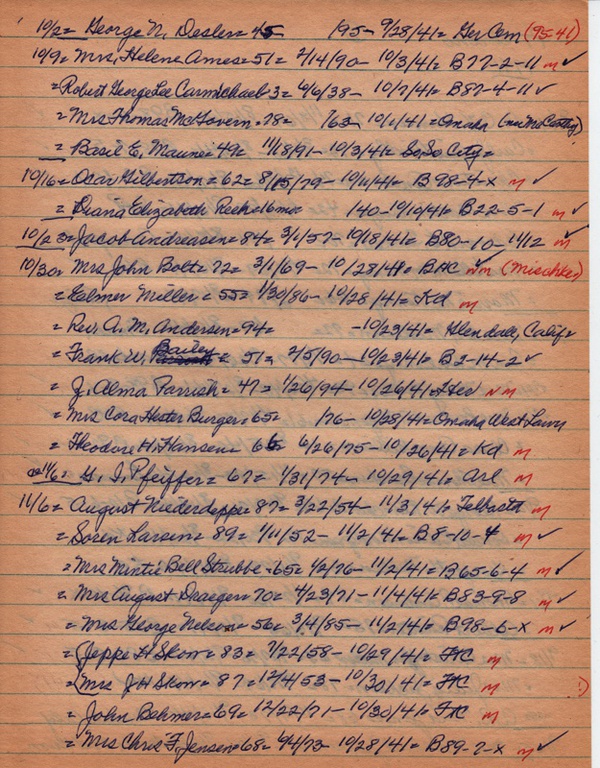 10/2= George N. Desler=45 /95- 9/28/41= Ger Cem (95-41)
10/9= Mrs, Helene Ames=51= 2/14/90- 10/3/41= B77-2-11 m ✓
=Robert George Lee Carmichael=3= 6/6/38- 10/7/41= B87-4-11 ✓
= Mrs Thomas McGovern=78= /63- 10/1/41=Omaha (nee McCarthy)
= Basil E, Maun=49= 11/18/91- 10/3/41= So, So City=
10/16= Oscar Gilbertson=62= 8/15/79- 10/11/41= B98-4-X m ✓
= Diana Elizabeth =16mo= /40-10/10/41= B22-5-1 m ✓
10/23= Jacob Andreasen=84= 3/1/57- 10/18/41= B80-10-11/12 m ✓
10/30= Mrs John Bolt=72= 3/1/69- 10/28/41= BHC m (Mischke)
= Elmer Miller=55= 1/30/86- 10/28/41= Kd m
= Rev. A. M. Andersen=94= -10/23/41= Glendale, Calif=
= Frank W, Bailey= 51= 2/5/90- 10/23/41= B2-14-2 ✓
= J. Alma Parrish=47= 1/26/94- 10/26/41= m
= Mrs Cora Hester Burger=65= /76- 10/28/41=Omaha West Lawn
= Theodore H. Hansen= 66 6/26/75- 10/26/41= Kd m
11/6= G. I. Pfeiffer=67= 1/31/74- 10/29/41= Arl m
11/6= August Niederdeppe=87= 3/22/54- 11/3/41= Telbasta m
= Soren Larsen=89= 1/11/52- 11/2/41= B8-10-4 m ✓
= Mrs Mintie Bell Strubbe=65= 1/2/76- 11/2/41= B65-6-4 m ✓
= Mrs August Draeger=70= 4/23/71- 11/4/41= B83-9-8 m ✓
= Mrs George Nelson=56= 3/4/85- 11/2/41= B98-6-X m ✓
= (Jeppe H Skow=83= 7/22/58- 10/29/41= FC m
= (Mrs J H Skow= 87=12/4/53- 10/30/41= FC m :)
= John Behmer=69= 12/22/71- 10/30/41= FC m
= Mrs Chris F, Jensen=68= 6/4/73- 10/28/41= B89-7-X m ✓